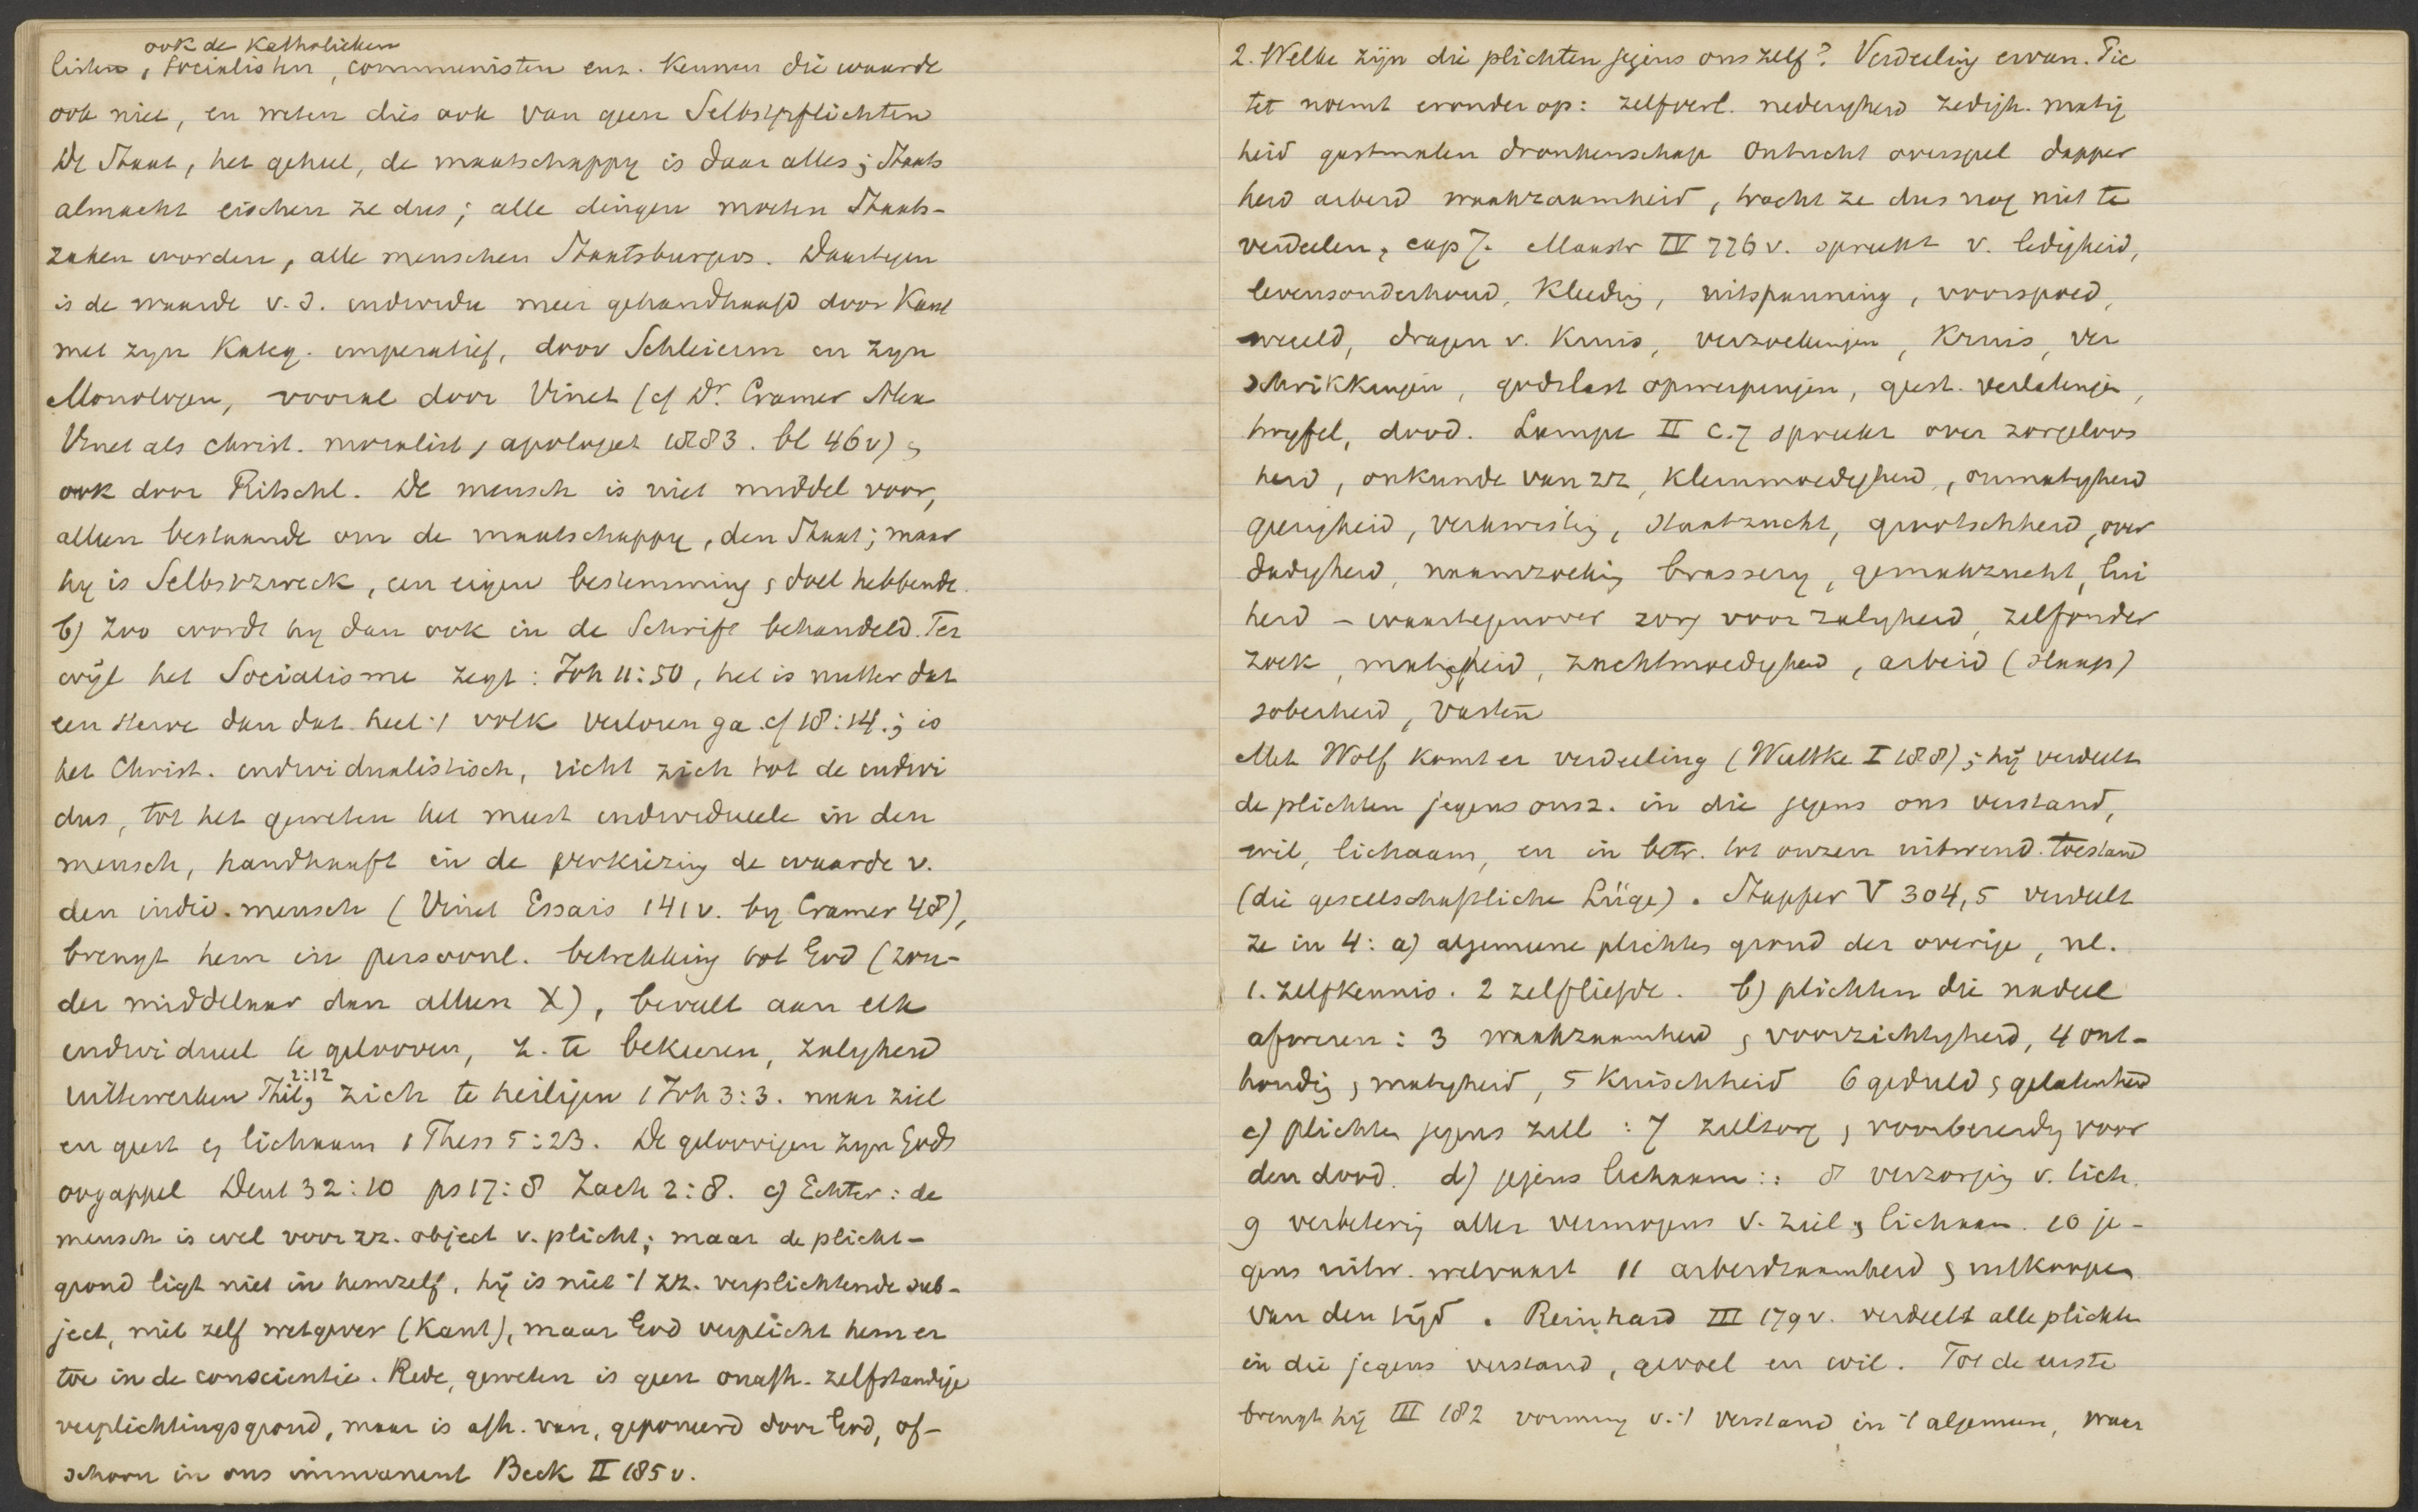 ook de Katholieken
listen, socialisten, communisten enz. kennen die waarde
ook niet, en weten dus ook van geen Selbstpflichten
De Staat, het geheel, de maatschappy is daar alles; Staats
almacht eischen ze dus; alle dingen moeten Staats-
zaken worden, alle menschen Staatsburgers. Daartegen
is de waarde v. d. individu meer gehandhaafd door Kant
met zyn Kateg. imperatief, door Schleierm en zyn
Monologen, vooral door Vinet (cf Dr. Cramer Alex
Vinet als christ. moralist, apologeet 1883. bl 46v) en
ook door Ritschl. De mensch is niet middel voor,
alleen bestaande om de maatschappy, den Staat; maar
hy is Selbstzweck, een eigen bestemming en doel hebbende.
b) Zoo wordt hy dan ook in de Schrift behandeld. Ter
wijl het Socialisme zegt: Joh 11:50, het is nutter dat
een sterve dan dat heel 't volk verloren ga. cf 18:14.; is
het Christ. individualistisch, richt zich tot de indivi
dus, tot het geweten het meest individueele in den
mensch, handhaaft in de verkiezing de waarde v.
den indiv. mensch (Vinet Essais 141v. by Cramer 48),
brengt hem in persoonl. betrekking tot God (zon-
der middelaar dan alleen X), beveelt aan elk
individueel te gelooven, z. te bekeeren, zaligheid
uittewerken Phil 2:12, zich te heiligen 1 Joh 3:3. naar ziel
en geest en lichaam 1 Thess 5:23. De geloovigen zyn Gods
oogappel Deut 32:10 ps 17:8 Zach 2:8. c) Echter: de
mensch is wel voor zz. object v. plicht; maar de plicht-
grond ligt niet in hemzelf, hij is niet 't zz. verplichtende sub-
ject, niet zelf wetgever (Kant), maar God verplicht hem er
toe in de conscientie. Rede, geweten is geen onafh. zelfstandige
verplichtingsgrond, maar is afh. van, geponeerd door God, of-
schoon in ons immanent Beck II 185v.
2. Welke zijn die plichten jegens ons zelf? Verdeeling ervan. Pic
tet noemt eronder op: zelfverl. nederigheid zedigh. matig
heid gastmalen dronkenschap Ontucht overspel dapper
heid arbeid waakzaamheid, tracht ze dus nog niet te
verdeelen, cap 7. Maastr IV 776v. spreekt v. ledigheid,
levensonderhoud, Kleeding, uitspanning, voorspoed,
weeld, dragen v. Kruis, verzoekingen, Kruis, ver
schrikkingen, godslast opwerpingen, geest. verlatingen,
twyfel, dood. Lampe II c. 7 spreekt over zorgeloos
heid, onkunde van zz, Kleinmoedigheid, onmatigheid
gierigheid, verkwisting, Staatzucht, grootschheid, over
dadigheid, naamzoeking brassery, gemakzucht, lui
heid – waartegenover zorg voor zaligheid, zelfonder
zoek, matigheid, zachtmoedigheid, arbeid (slaap)
soberheid, vasten
Met Wolf komt er verdeeling (Wuttke I 188); hij verdeelt
de plichten jegens onsz. in die jegens ons verstand,
wil, lichaam, en in betr. tot onzen uitwend. toestand
(die gesellschaftliche Lüge). Stapfer V 304,5 verdeelt
ze in 4: a) algemeene plichten grond der overige, nl.
1. zelfkennis. 2 zelfliefde. b) plichten die nadeel
afweren: 3 waakzaamheid en voorzichtigheid, 4 ont-
houding en matigheid, 5 Kuischheid 6 geduld en gelatenheid
c) plichten jegens ziel: 7 zielzorg en voorbereidg voor
den dood. d) jegens lichaam:: 8 verzorging v. lich.
9 verbetering aller vermogens v. ziel en lichaam. 10 je-
gens uitw. welvaart 11 arbeidzaamheid en uitkoopen
van den tijd. Reinhard III 179v. verdeelt alle plichten
in die jegens verstand, gevoel en wil. Tot de eerste
brengt hij III 182 vorming v. 't verstand in 't algemeen, waar